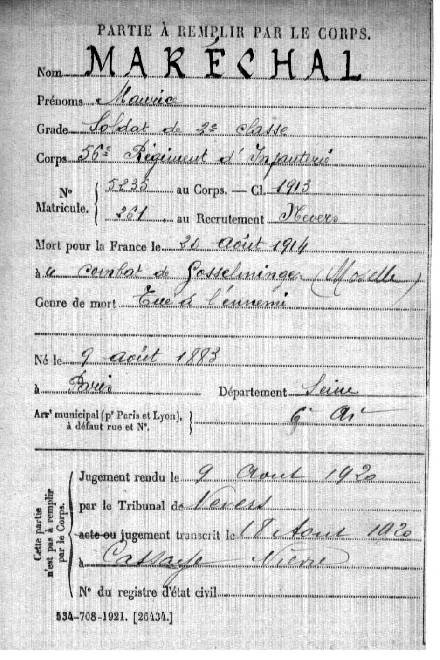 PARTIE À REMPLIR PAR LE CORPS.
Nom MARÉCHAL
Prénoms Maurice
Grade Soldat de 2e classe
Corps 56e Régiment d'Infanterie
N° Matricule. 5233 au Corps. — Cl. 1913
261 au Recrutement Nevers
Mort pour la France le 20 août 1914
à u combat de Gosselminge (Moselle)
Genre de mort Tué à l'ennemi
Né le 9 août 1883
à Paris Département Seine
Arrt municipal (pr Paris et Lyon), à défaut rue et N°. 6e Ar
Cette partie n'est pas à remplir par le Corps.
Jugement rendu le 9 Aout 1920
par le Tribunal de Nevers
acte ou jugement transcrit le 18 Aout 1920
à Nièvre
N° du registre d'état civil
534-708-1921. [26434.]